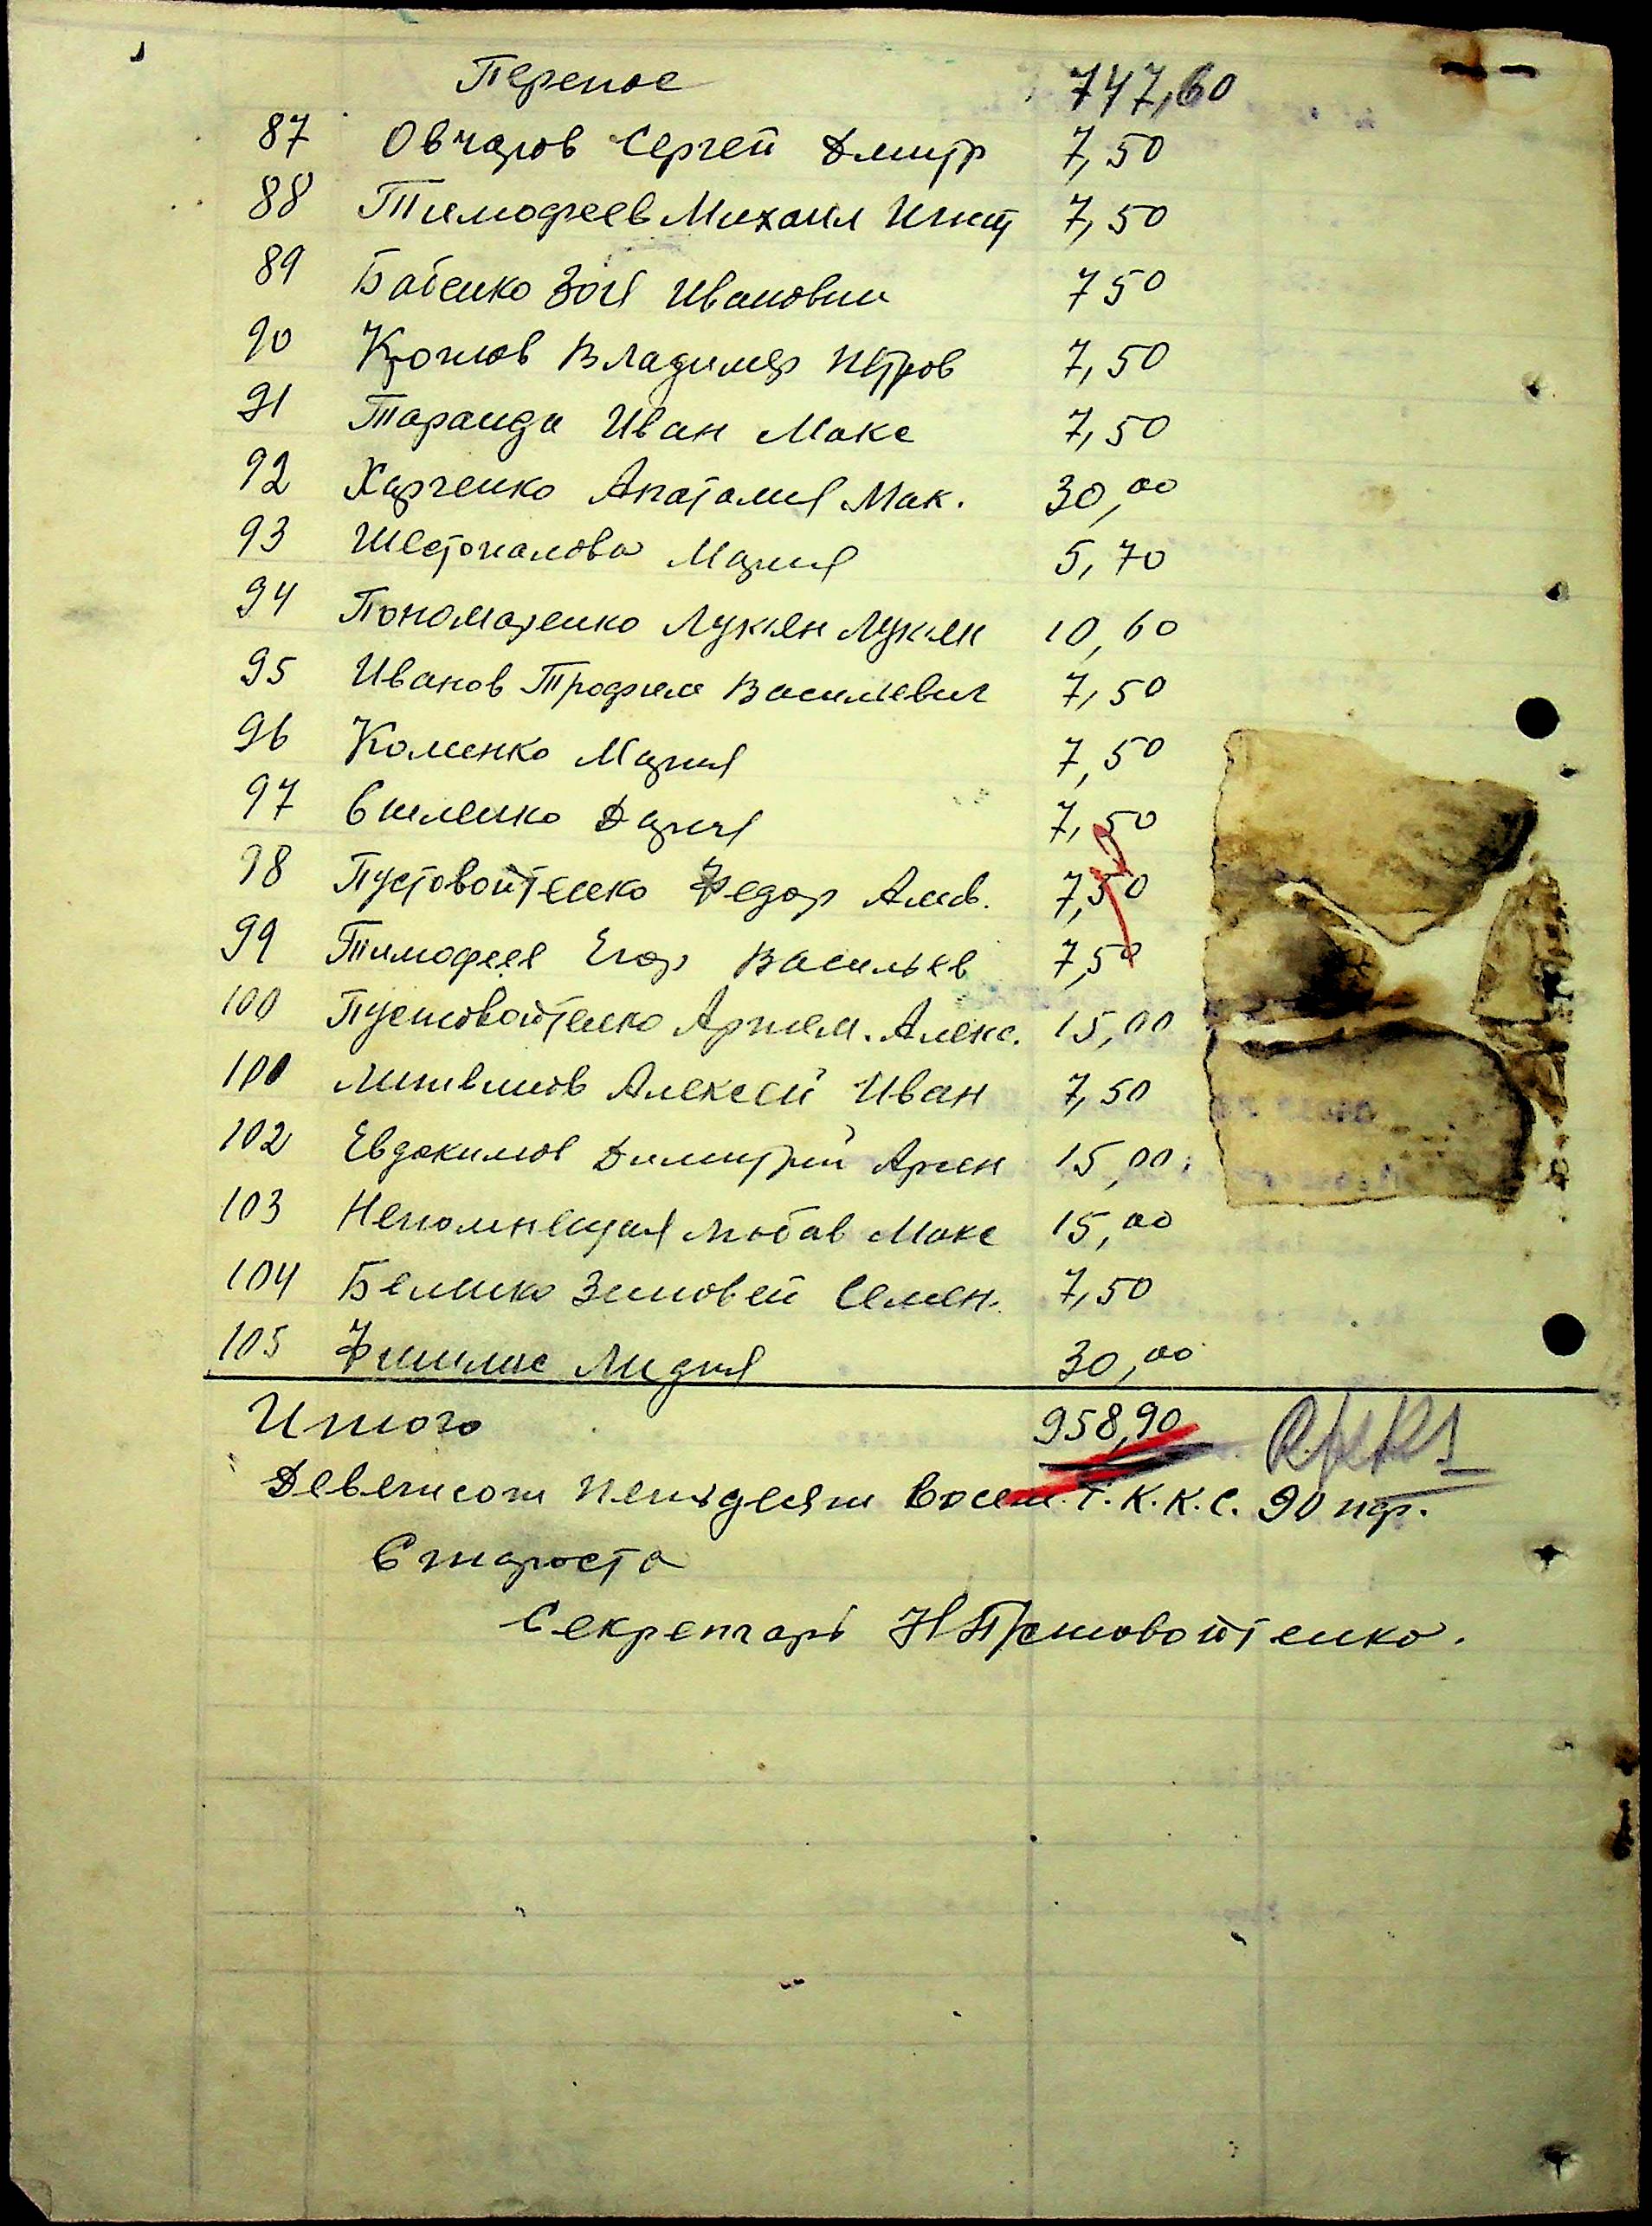 Перенос 747,60
87 Овчаров Сергей Дмитр 7,50
88 Тимофеев Михаил Игнат 7,50
89 Бабенко Зоя Ивановна 7 50
90 Владимер Петров 7,50
91 Таранда Иван Макс 7,50
92 Харченко Анатолия Мак. 30,00
93 Шестопалова Мария 5,70
94 Пономаренко Лукян Лукян 10,60
95 Иванов Трофим Василевич 7,50
96 Коменко Мария 7,50
97 Дария 7,50
98 Пустовойтенко Федор 7,50
99 Тимофеев Егор Васильев 7,50
100 Пустовойтенко Артем. Алекс. 15,00
100 Литвинов Алексей Иван 7,50
102 Евдокимов Димитрий Арсен 15,00
103 Непомнещая Любов Макс 15,00
104 Белико Зиновей Семен. 7,50
105 Лидия 30,00
Итого 958,90
Девятсот Пендесят восем. Т.К.К.С. 90 пф.
Староста
Секретарь Н Пустовойтенко.